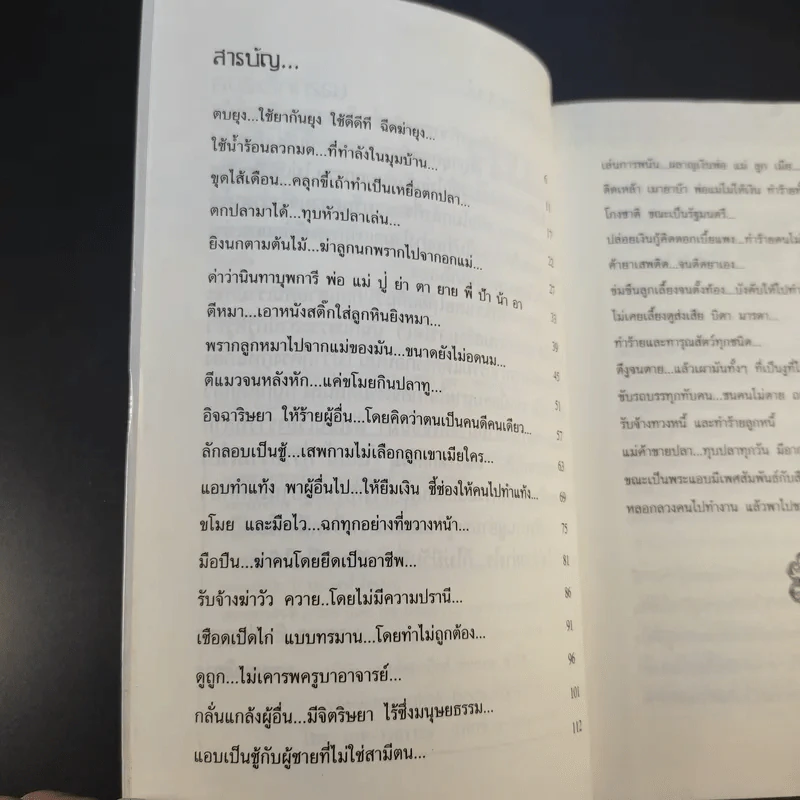 สารบัญ...
ตบยุง...ใช้ยากันยุง ใช้ดีดีที ฉีดฆ่ายุง...
ใช้น้ำร้อนลวกมด...ที่ทำลังในมุมบ้าน... 6
ขุดไส้เดือน...คลุกขี้เถ้าทำเป็นเหยื่อตกปลา... 11
ตกปลามาได้...ทุบหัวปลาเล่น...
ยิงนกตามต้นไม้...ฆ่าลูกนกพรากไปจากอกแม่... 22
ด่าว่านินทาบุพการี พ่อ แม่ ปู่ ย่า ตา ยาย พี่ ป้า น้า อา 27
ตีหมา...เอาหนังสติ๊กใส่ลูกหินยิงหมา... 33
พรากลูกหมาไปจากแม่ของมัน...ขนาดยังไม่อดนม... 39
ตีแมวจนหลังหัก...แค่ขโมยกินปลาทู... 45
อิจฉาริษยา ให้ร้ายผู้อื่น...โดยคิดว่าตนเป็นคนดีคนเดียว... 51
ลักลอบเป็นชู้...เสพกามไม่เลือกลูกเขาเมียใคร... 57
แอบทำแท้ง พาผู้อื่นไป...ให้ยืมเงิน ชี้ช่องให้คนไปทำแท้ง... 63
ขโมย และมือไว...ฉกทุกอย่างที่ขวางหน้า... 69
มือปืน...ฆ่าคนโดยยึดเป็นอาชีพ... 75
รับจ้างฆ่าวัว ควาย..โดยไม่มีความปรานี... 81
เชือดเป็ดไก่ แบบทรมาน...โดยทำไม่ถูกต้อง... 86
ดูถูก...ไม่เคารพครูบาอาจารย์... 91
กลั่นแกล้งผู้อื่น...มีจิตริษยา ไร้ซึ่งมนุษยธรรม... 96
แอบเป็นชู้กับผู้ชายที่ไม่ใช่สามีตน... 101
112
เล่นการพนัน...ผลาญเงินพ่อ แม่ ลูก เมีย...
ติดเหล้า เมายาบ้า พ่อแม่ไม่ให้เงิน
โกงชาติ ขณะเป็นรัฐมนตรี...
ปล่อยเงินกู้คิดดอกเบี้ยแพง...ทำร้ายคนไม่
ค้ายาเสพติด...จนติดยาเอง...
ข่มขืนลูกเลี้ยงจนตั้งท้อง...บังคับให้ไปทำ
ไม่เคยเลี้ยงดูส่งเสีย บิดา มารดา...
ทำร้ายและทารุณสัตว์ทุกชนิด...
ตีงูจนตาย...แล้วเผามันทั้งๆ ที่เป็นงูที่ไ
ขับรถบรรทุกทับคน...ชนคนไม่ตาย
รับจ้างทวงหนี้ และทำร้ายลูกหนี้
แม่ค้าขายปลา...ทุบปลาทุกวัน
ขณะเป็นพระแอบมีเพศสัมพันธ์กับ
หลอกลวงคนไปทำงาน แล้วพาไป